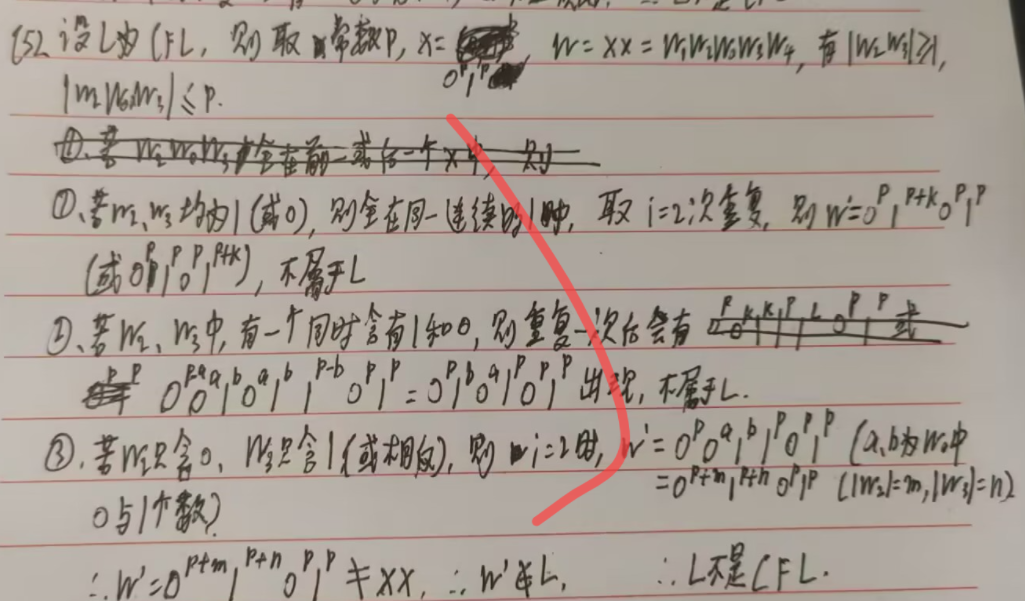 (5). 设L为CFL, 则取常数P, x=0^P1^P, W=xx=W₁W₂W₀W₃W₄, 有|W₂W₃|≥1,
|W₂W₀W₃|≤P.
①、若W₂W₀W₃全在前一或后一个x中, 则
①、若W₂、W₃均为1(或0), 则全在同一连续的1中, 取i=2次重复, 则W'=0^P1^{P+k}0^P1^P
(或0^P1^P0^P1^{P+k}), 不属于L
②、若W₂、W₃中, 有一个同时含有1和0, 则重复一次后会有
0^{P-a}0^a1^b0^a1^b1^{P-b}0^P1^P=0^P1^b0^a1^P0^P1^P出现, 不属于L.
③、若W₂只含0, W₃只含1(或相反), 则i=2时, W'=0^P0^a1^b1^P0^P1^P (a,b为W₀中
=0^{P+m}1^{P+n}0^P1^P (|W₂|=m,|W₃|=n)
0与1个数)
∴W'=0^{P+m}1^{P+n}0^P1^P≠xx, ∴W'∉L, ∴L不是CFL.